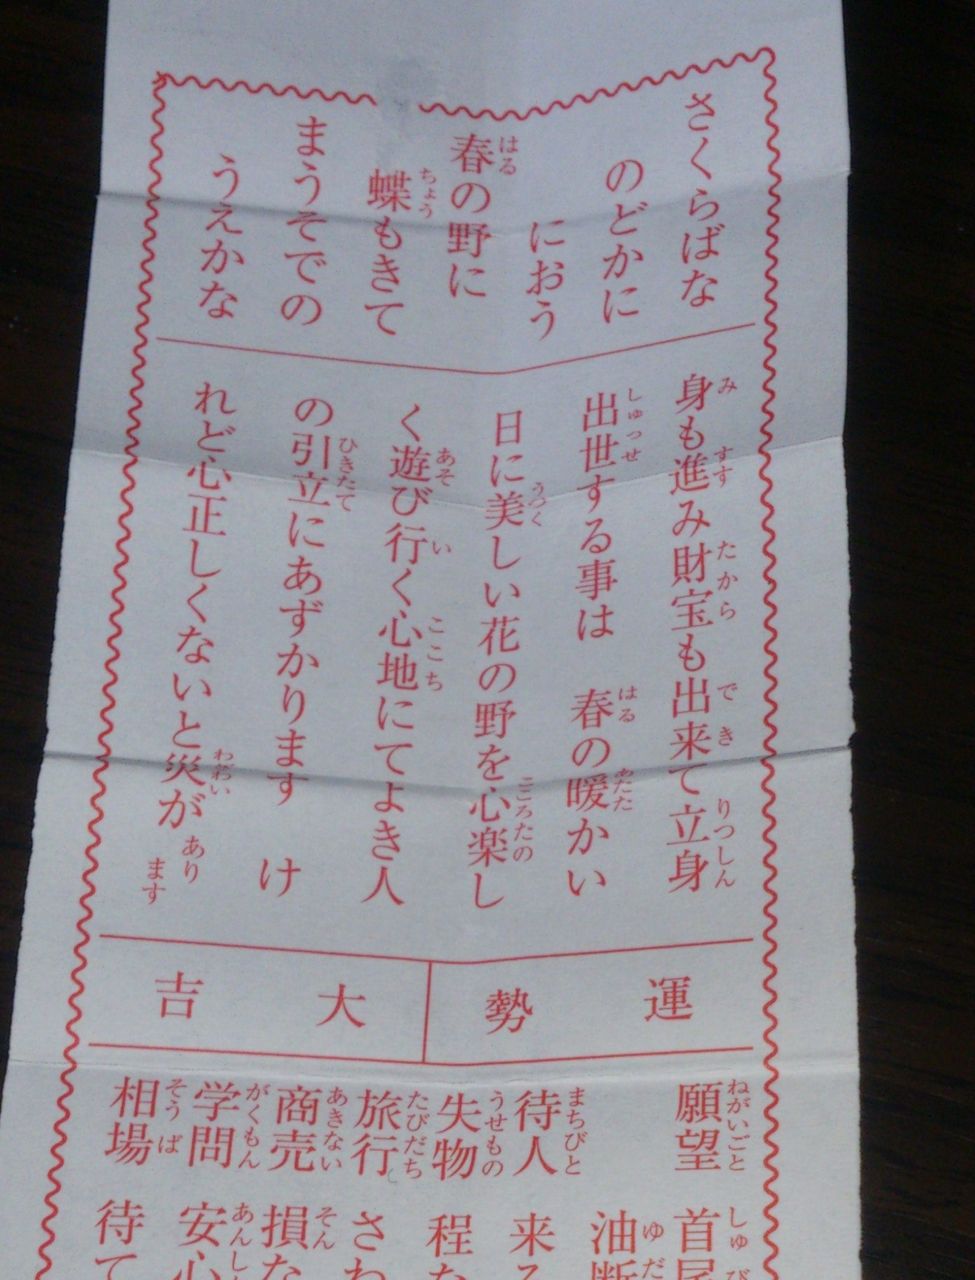 さくらばな
のどかに
におう
春の野に
蝶もきて
まうそでの
うえかな
身も進み財宝も出来て立身
出世する事は　春の暖かい
日に美しい花の野を心楽し
く遊び行く心地にてよき人
の引立にあずかります　け
れど心正しくないと災が あり
ます
運勢 大吉
願望 首
油
待人 来
失物 程
旅行 さ
商売 損
学問 安心
相場 待て